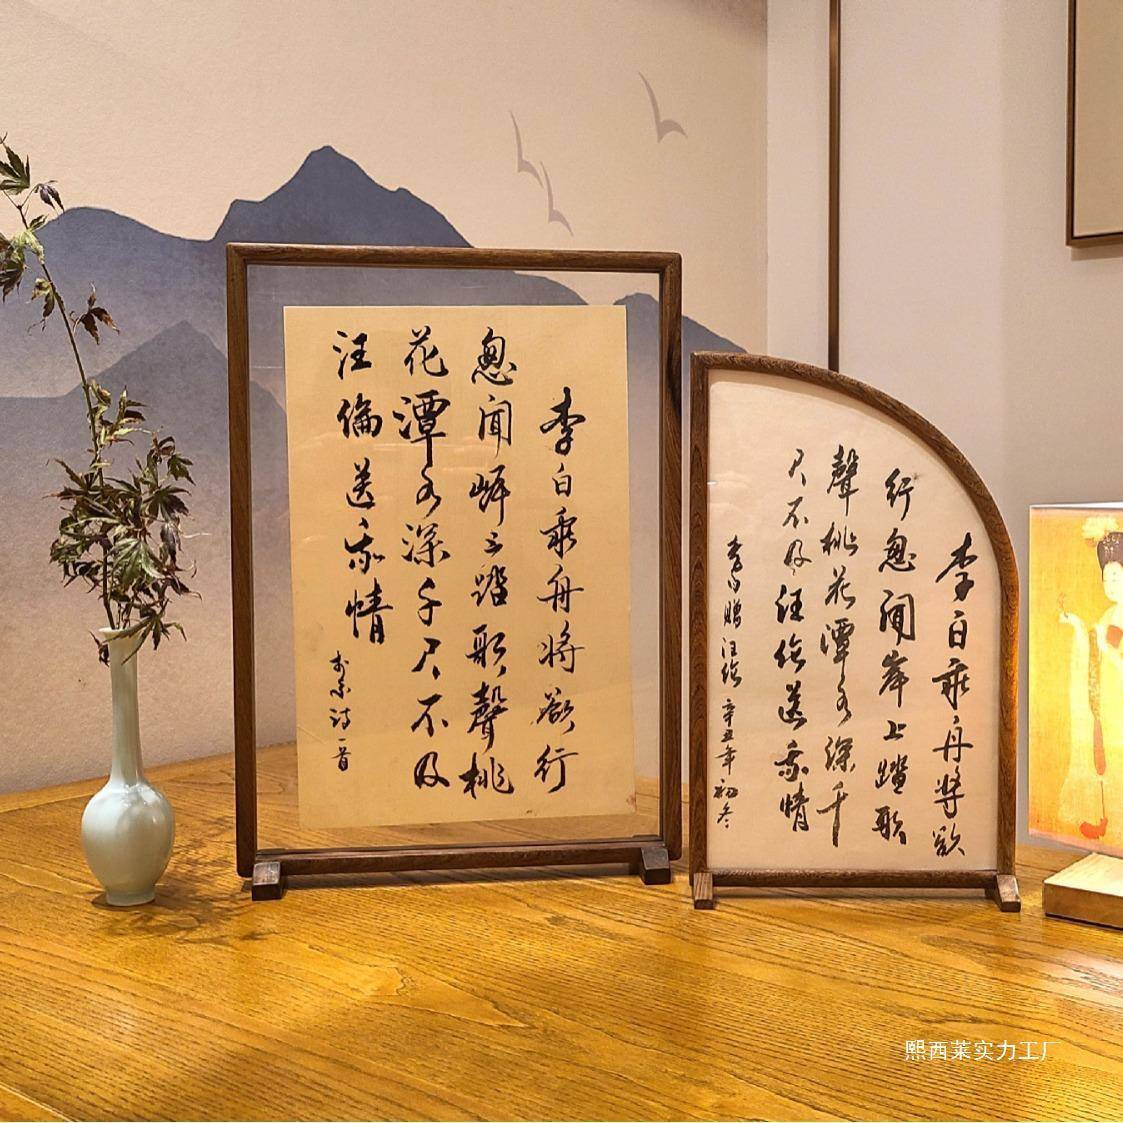 李白乘舟將欲行
忽聞岸上踏歌聲桃
花潭水深千尺不及
汪倫送我情
李白詩一首
李白乘舟將欲
行忽聞岸上踏歌
聲桃花潭水深千
尺不及汪倫送我情
李白贈汪倫 辛丑年初冬
熙西莱实力工厂